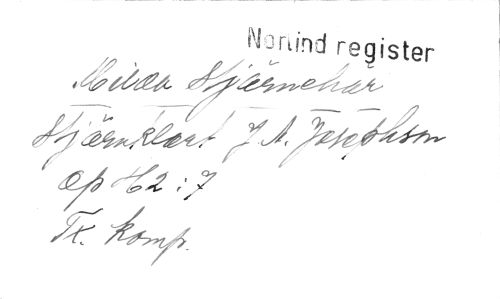 Norlind register
Milda Stjärnehär
Stjärnklart J. A. Josephson
op 42:7
Tx. komp.